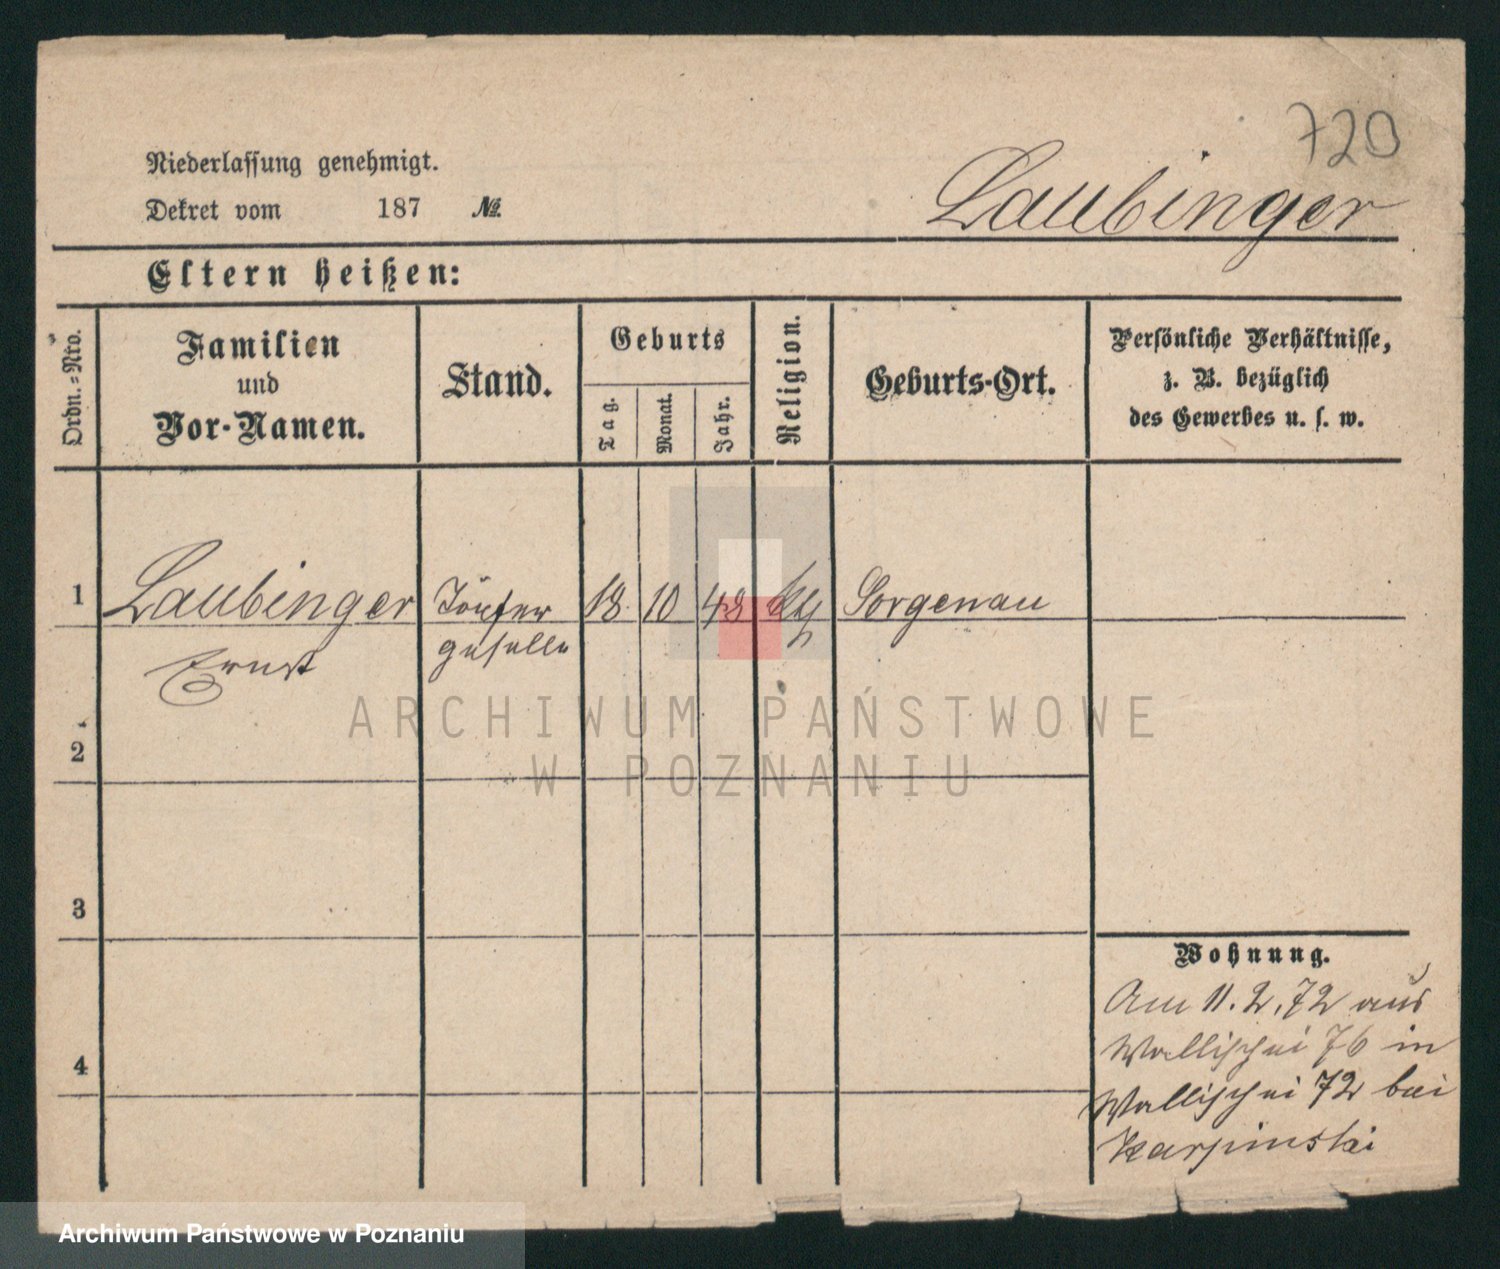 720
Niederlassung genehmigt.
Dekret vom 187 №
Laubinger
Eltern heißen:
Ordn.=Nro.
Familien
und
Vor-Namen.
Stand.
Geburts
Tag.
Monat.
Jahr.
Religion.
Geburts-Ort.
Persönliche Verhältnisse,
z. B. bezüglich
des Gewerbes u. s. w.
1 Laubinger Töpfer 18. 10 48 kth Sorgenau
Ernst geselle
2
3
4
Wohnung.
Am 11. 2. 72 aus
Wallischei 76 in
Wallischei 72 bei
Karpinski
ARCHIWUM PAŃSTWOWE
W POZNANIU
Archiwum Państwowe w Poznaniu